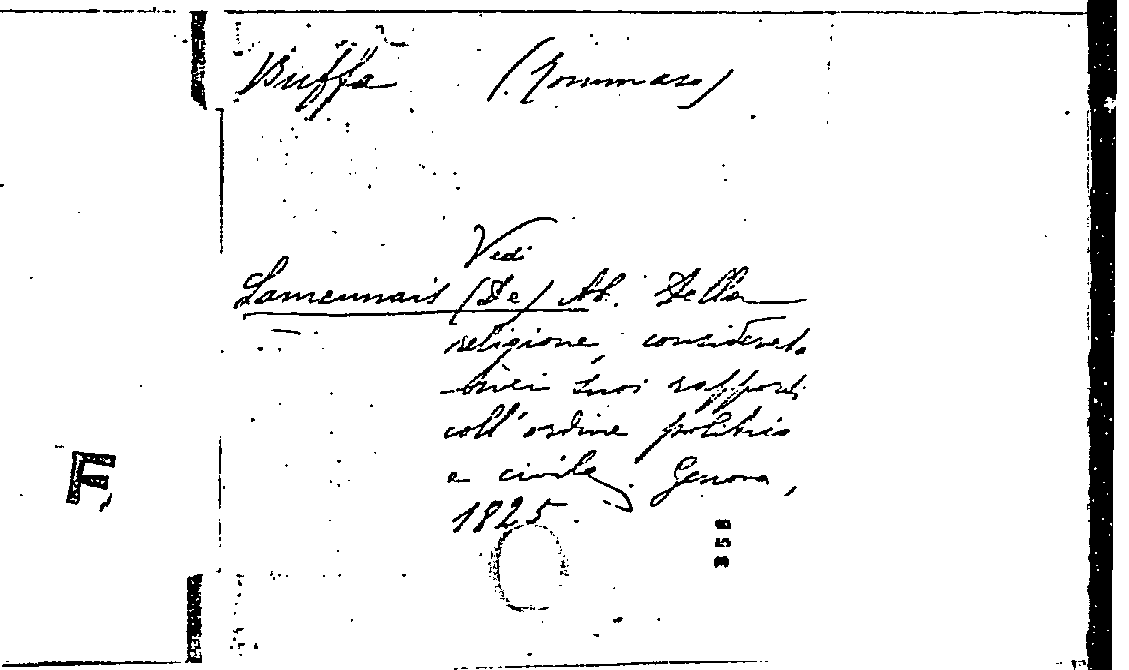 Buffa (Tommaso)
Vedi
Lamennais (De) Ab. Della
religione, considerata
nei suoi rapporti
coll'ordine politico
e civile. Genova,
1825.
F,